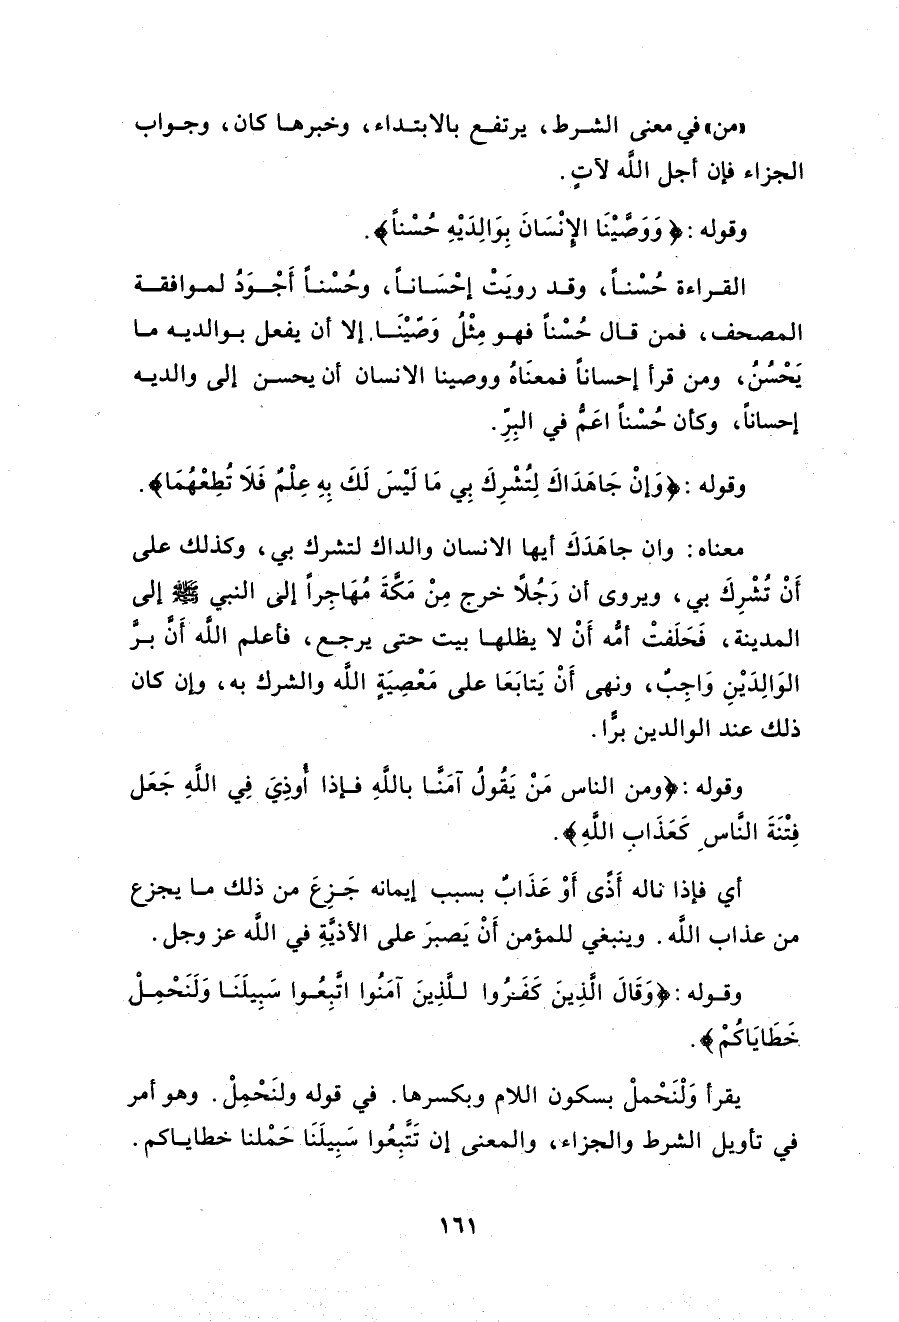 «من» في معنى الشرط، يرتفع بالابتداء، وخبرها كان، وجواب
الجزاء فإن أجل اللَّه لآتٍ.
وقوله: ﴿وَوَصَّيْنَا الإِنْسَانَ بِوَالِدَيْهِ حُسْناً﴾.
القراءة حُسْناً، وقد رويَتْ إحْسَاناً، وحُسْناً أَجْوَدُ لموافقة
المصحف، فمن قال حُسْناً فهو مِثْلُ وَصَّيْنَا. إلا أن يفعل بوالديه ما
يَحْسُنُ، ومن قرأ إحساناً فمعنَاهُ ووصينا الانسان أن يحسن إلى والديه
إحساناً، وكأن حُسْناً اعَمُّ في البِرِّ.
وقوله: ﴿وَإنْ جَاهَدَاكَ لِتُشْرِكَ بِي مَا لَيْسَ لَكَ بِهِ عِلْمٌ فَلَا تُطِعْهُمَا﴾.
معناه: وان جاهَدَكَ أيها الانسان والداك لتشرك بي، وكذلك على
أَنْ تُشْرِكَ بي، ويروى أن رَجُلاً خرج مِنْ مَكَّةَ مُهَاجِراً إلى النبي ﷺ إلى
المدينة، فَحَلَفتْ أمُّه أَنْ لا يظلها بيت حتى يرجع، فأعلم اللَّه أَنَّ بـرَّ
الوَالِدَيْنِ وَاجِبٌ، ونهى أَنْ يَتابَعَا على مَعْصِيَةِ اللَّه والشرك به، وإن كان
ذلك عند الوالدين برًّا.
وقوله: ﴿ومن الناس مَنْ يَقُولُ آمَنَّا باللَّهِ فإذا أُوذِيَ فِي اللَّهِ جَعَل
فِتْنَةَ النَّاسِ كَعَذَابِ اللَّهِ﴾.
أي فإذا ناله أَذًى أَوْ عَذَابٌ بسبب إيمانه جَزِعَ من ذلك ما يجزع
من عذاب اللَّه. وينبغي للمؤمن أَنْ يَصبرَ على الأذيَّةِ في اللَّه عز وجل.
وقوله: ﴿وَقَالَ الَّذِينَ كَفَرُوا لِلَّذِينَ آمَنُوا اتَّبِعُوا سَبِيلَنَا وَلَنَحْمِلْ
خَطَايَاكُمْ﴾.
يقرأ وَلْنَحْملْ بسكون اللام وبكسرها. في قوله ولنَحْمِلْ. وهو أمر
في تأويل الشرط والجزاء، والمعنى إن تَتَّبِعُوا سَبِيلَنَا حَمْلنا خطاياكم.
١٦١